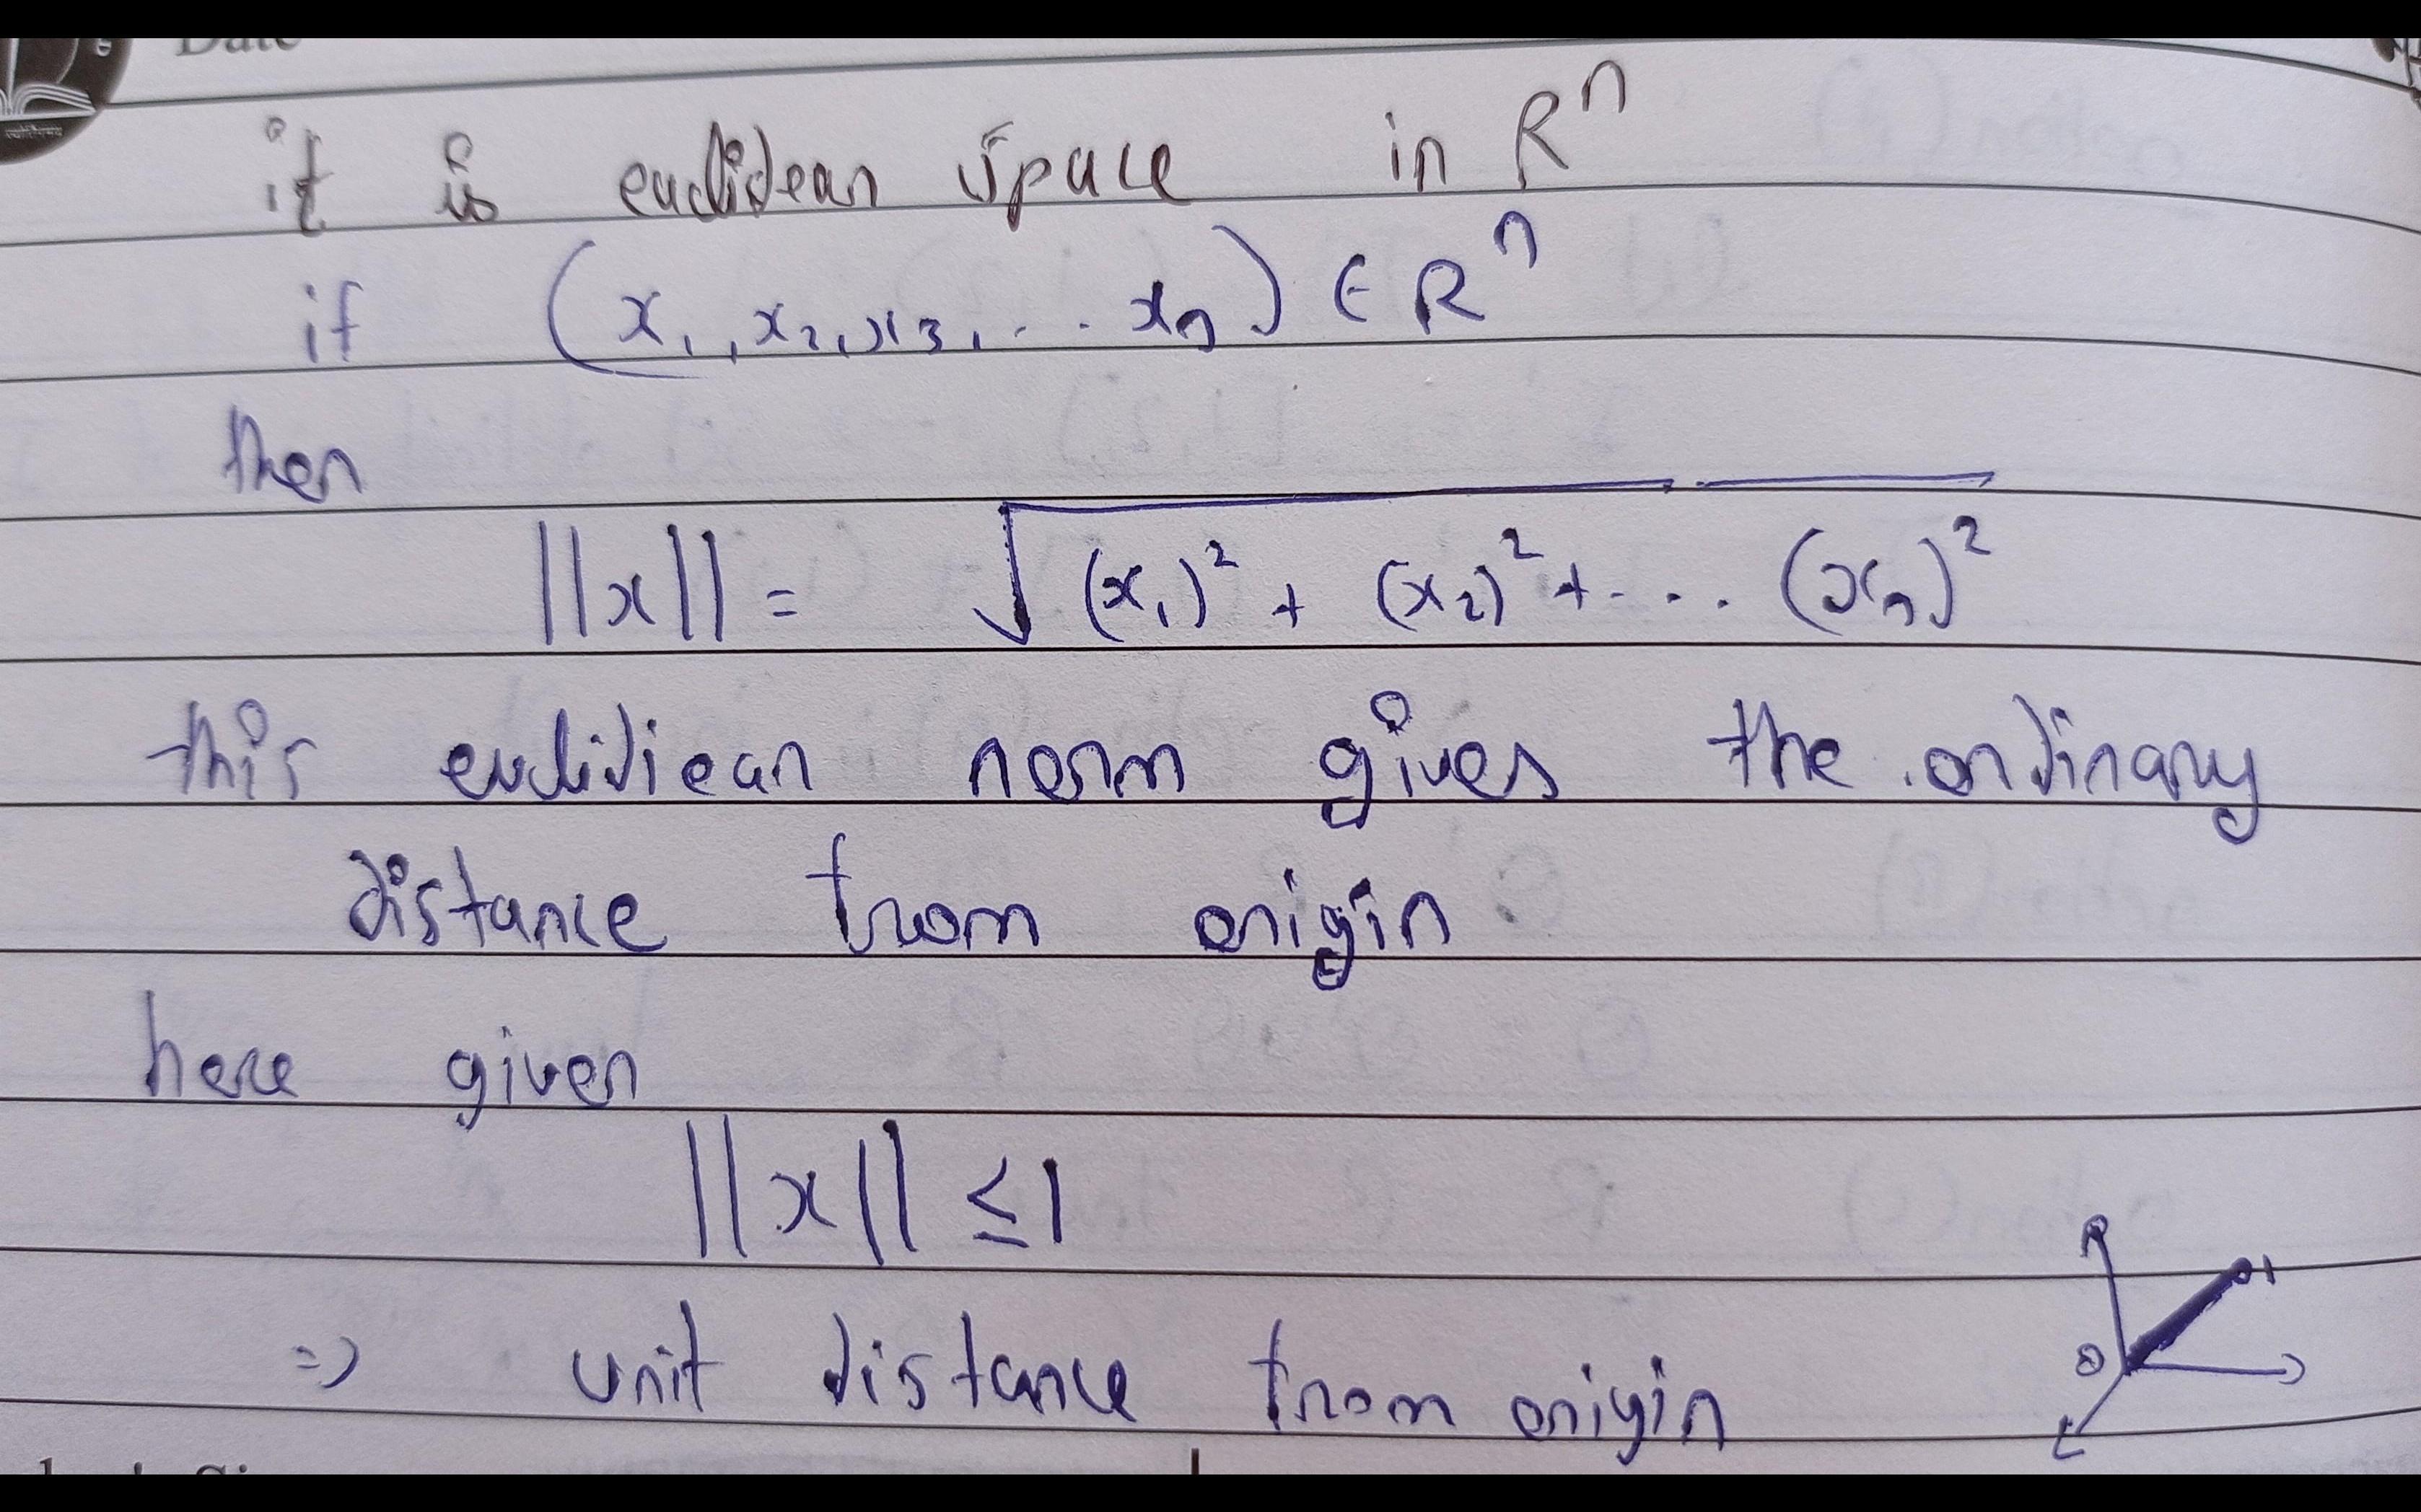 Date
it is euclidean space in R^n
if (x₁, x₂, x₃, . . . xₙ) ∈ R^n
then
||x|| = √((x₁)² + (x₂)² + . . . (xₙ)²)
this euclidiean norm gives the ordinary
distance from origin
here given
||x|| ≤ 1
⇒ unit distance from origin
0 1